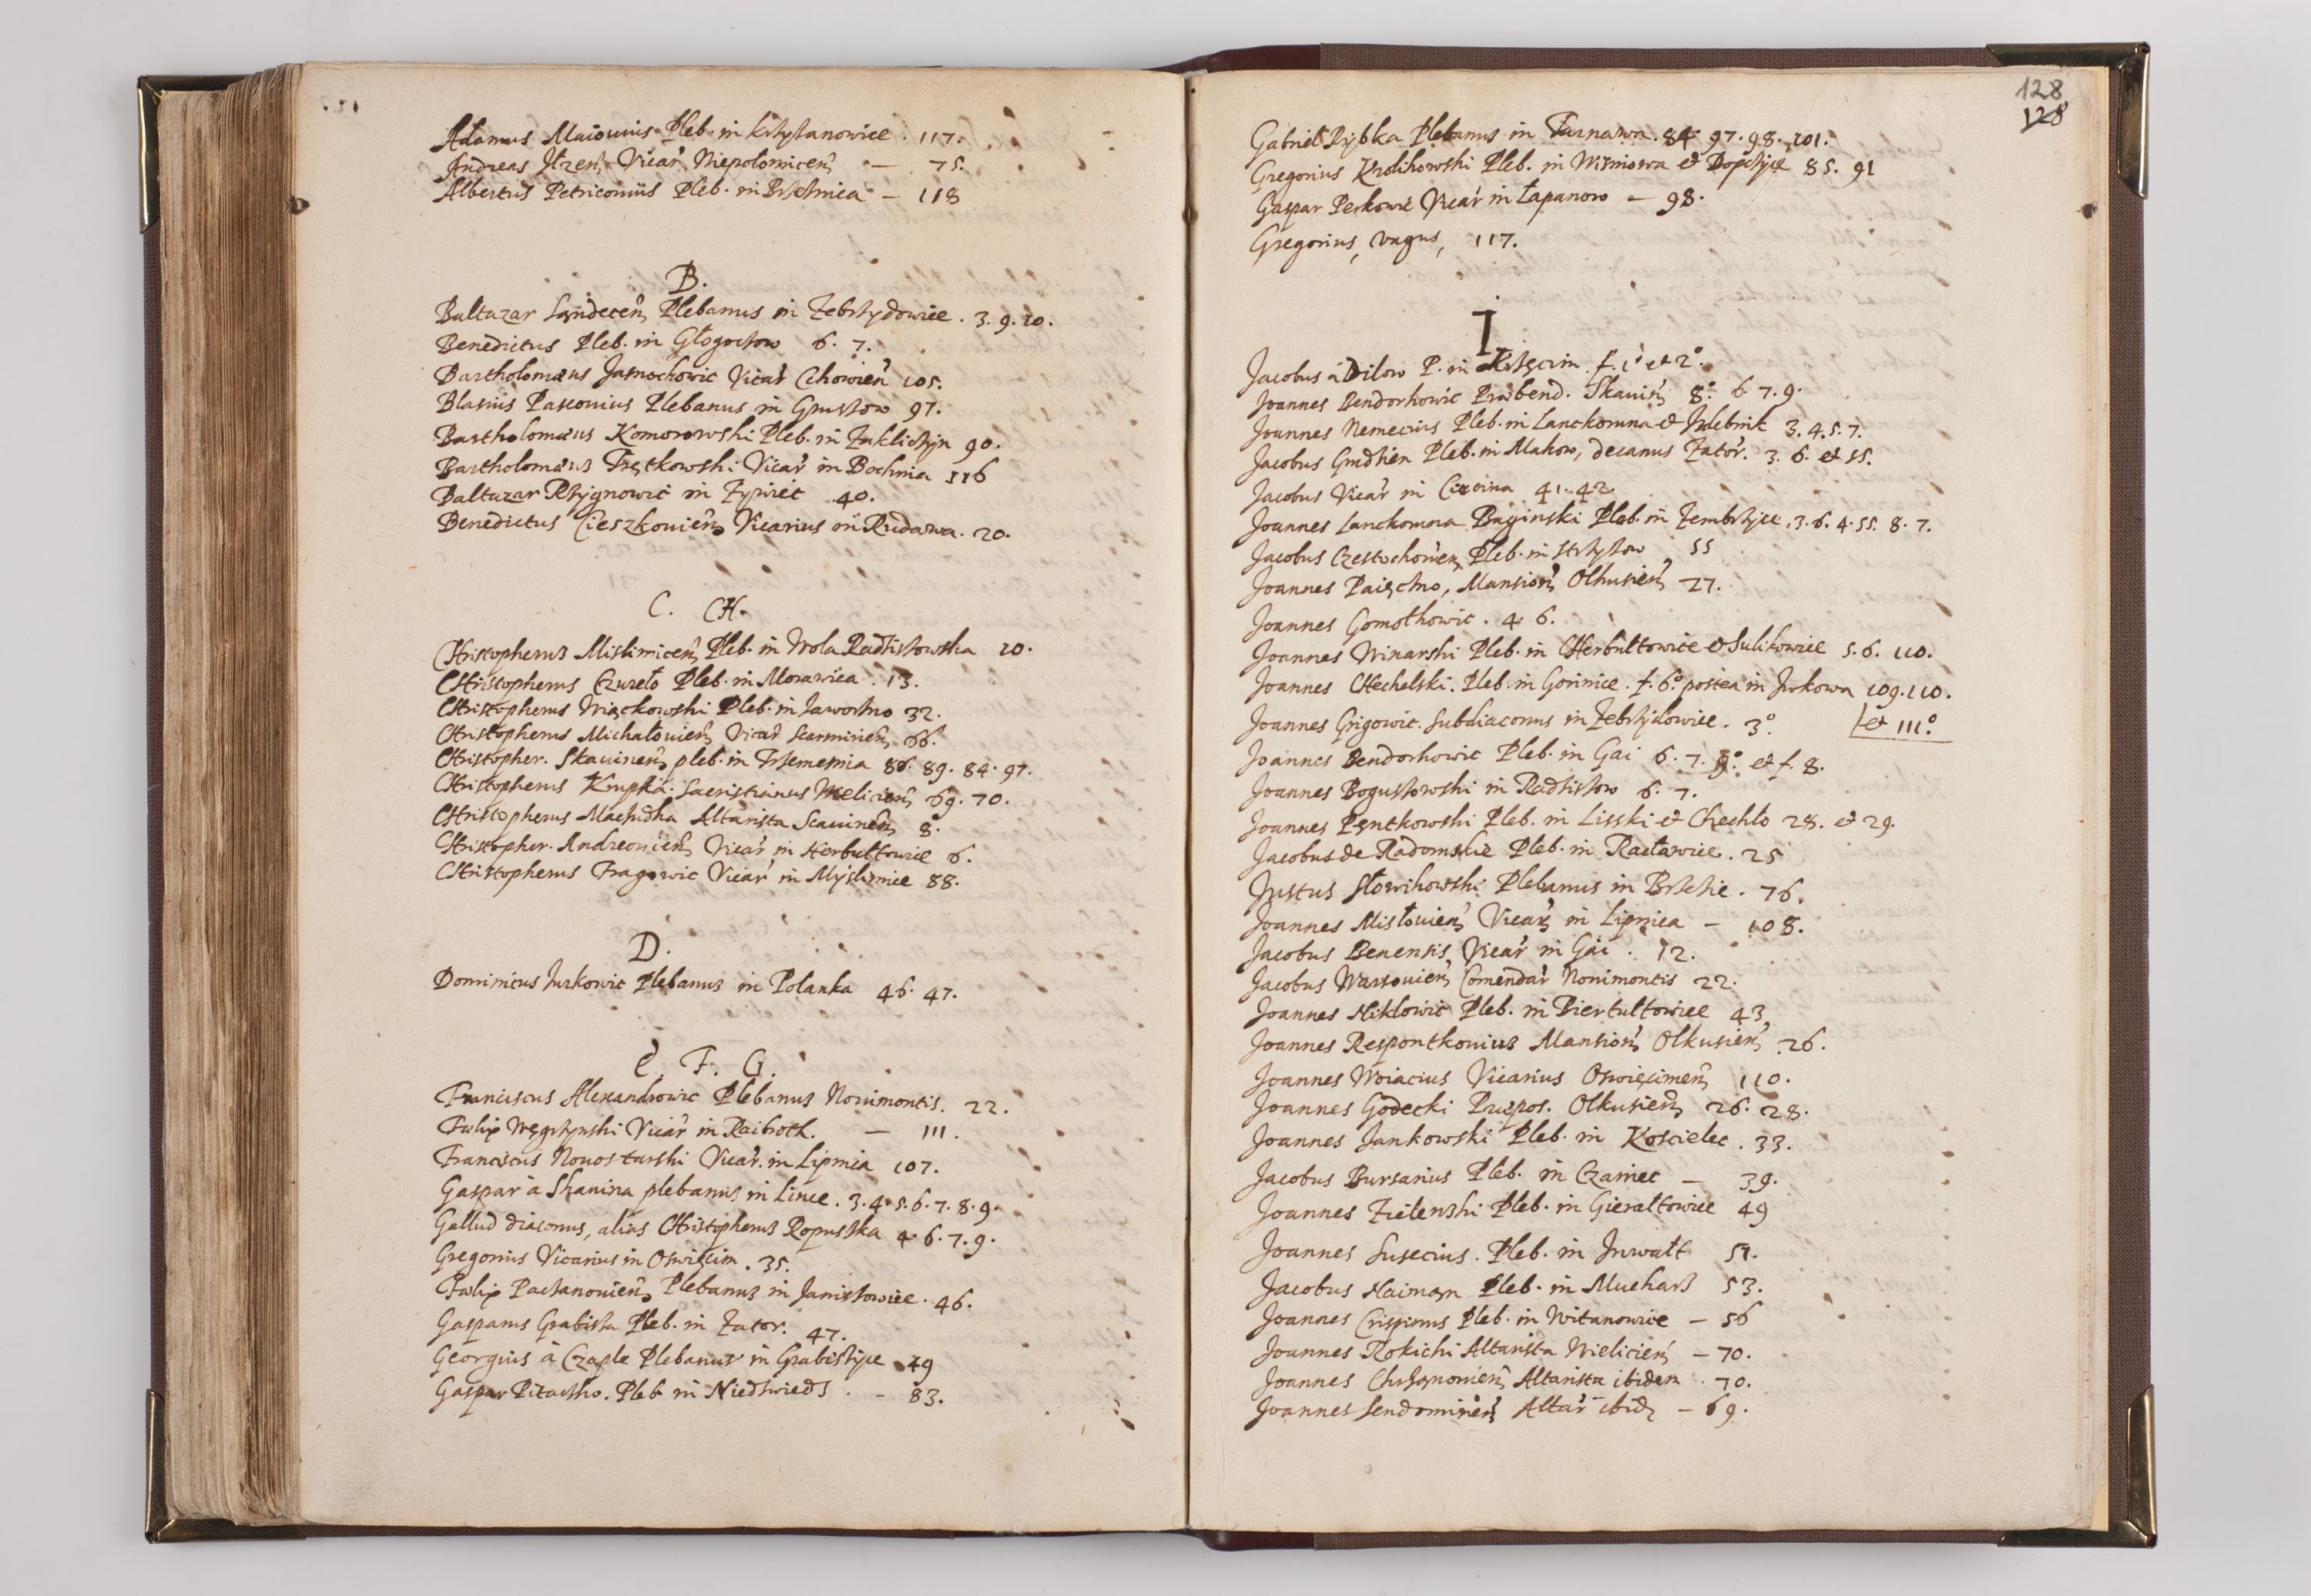 Adamus Maiovius Pleb. in Krzyżanowice. 117.
Andreas Vicar Niepołomicen — 75.
Albertus Petriconius Pleb. in Brzeznica — 118
B.
Baltazar Sandecen Plebanus in Zebrzydowice. 3. 9. 10.
Benedictus Pleb. in Głogoczow 6. 7.
Bartholomæus Jamochowic Vicar 105.
Blasius Pasconius Plebanus in Gruszow 97.
Bartholomæus Komorowski Pleb. in Zakliczyn 90.
Bartholomæus Trętkowski Vicar in Bochnia 116
Baltazar Rzÿgnowic in Zywiec 40.
Benedictus Cieszkovien Vicarius in Rudawa. 20.
C. CH.
Christopherus Mislimicen Pleb. in Wola Radziszowska 10.
Christopherus Czureło Pleb. in Morawica. 13.
Christopherus Więckowski Pleb. in Jaworzno 32.
Christopherus Michałovien Vicar 66.
Christopher. Skavinen pleb. in Trzemesnia 86. 89. 84. 97.
Christopherus Krupka. Sacristianus Wielicien 69. 70.
Christopherus Altarista Scavinen 8.
Christopher. Andreovien Vicar in Herbułtowice 6.
Christopherus Fragowic Vicar in Myslimice 88.
D.
Dominicus Jurkowic Plebanus in Polanka 46. 47.
E. F. G.
Franciscus Alexandrowic Plebanus Novimontis. 22.
Fælix Węgrzynski Vicar in Raibroth. — 111.
Franciscus Novotarski Vicar. in Lipnica 107.
Gaspar à Skavina plebanus in Lince. 3. 4. 5. 6. 7. 8. 9.
Gallus diaconus, alias Christopherus Ropuszka 4. 6. 7. 9.
Gregorius Vicarius in Oswięcim. 35.
Fælix Pacżanovien Plebanus in Janiszowice. 46.
Gasparus Grabisza Pleb. in Zator. 47.
Georgius à Czaple Plebanus in Graboszyce 49
Gaspar Pitaczko. Pleb in Niedzwiedz. — 83.
128
128
Gabriel Rybka Plebanus in Tarnawa. 84. 97. 98. 101.
Gregorius Krolikowski Pleb. in Wisniowa et Dopczyce 85. 91
Gaspar Perkowic Vicar in Łapanow — 98.
Gregorius, vagus, 117.
I.
Jacobus à Dilow P. in Krzęcin. f. 1° et 2°.
Joannes Bendorkowic Præbend. Skavin 8° 6. 7. 9.
Joannes Nemecius Pleb. in Lanckorona et Izdebnik 3. 4. 5. 7.
Jacobus Grudzien Pleb. in Makow, decanus Zator. 3. 6. et 55.
Jacobus Vicar in 41. 42
Joannes Lanckorona Baginski Pleb. in Zembrzyce. 3. 6. 4. 55. 8. 7.
Jacobus Czestochovien Pleb. in Stryszow 55
Joannes Paięczno, Mansion Olkusien 27.
Joannes Gomołkowic. 4. 6.
Joannes Winarski Pleb. in Cherbułtowice et Sułkowice 5. 6. 110.
Joannes Chechelski. Pleb. in Gorinice. f. 6° postea in Jurkowa 109. 110.
Joannes Grigowic. Subdiaconus in Zebrzydowice. 3°. et 111°
Joannes Bendorkowic Pleb. in Gai 6. 7. 9° et f. 8.
Joannes Boguszowski in Radziszow 6. 7.
Joannes Pęntkowski Pleb. in Lisski et Chechło 28. et 29.
Jacobus de Radomskie Pleb. in Racławice. 25
Justus Słowikowski Plebanus in Brzezie. 76.
Joannes Misłovien Vicar in Lipnica — 108.
Jacobus Benensis Vicar in Gai. 12.
Jacobus Warsovien Comendar Novimontis 22.
Joannes Niklowic Pleb. in Biertułtowice 43
Joannes Respontkovius Mansion Olkusien 26.
Joannes Woiacius Vicarius Oswięcimen 110.
Joannes Godecki Præpos. Olkusien 26. 28.
Joannes Jankowski Pleb. in Koscielec. 33.
Jacobus Bursarius Pleb. in Czaniec — 39.
Joannes Zielenski Pleb. in Gierałtowice 49
Joannes Susecius. Pleb. in Inwałt 51.
Jacobus Naiman Pleb. in Mucharz 53.
Joannes Crispinus Pleb. in Witanowice — 56
Joannes Rokicki Altarista Wielicien — 70.
Joannes Chrzanovien Altarista ibidem. 70.
Joannes Sendomirien Altar ibid — 69.